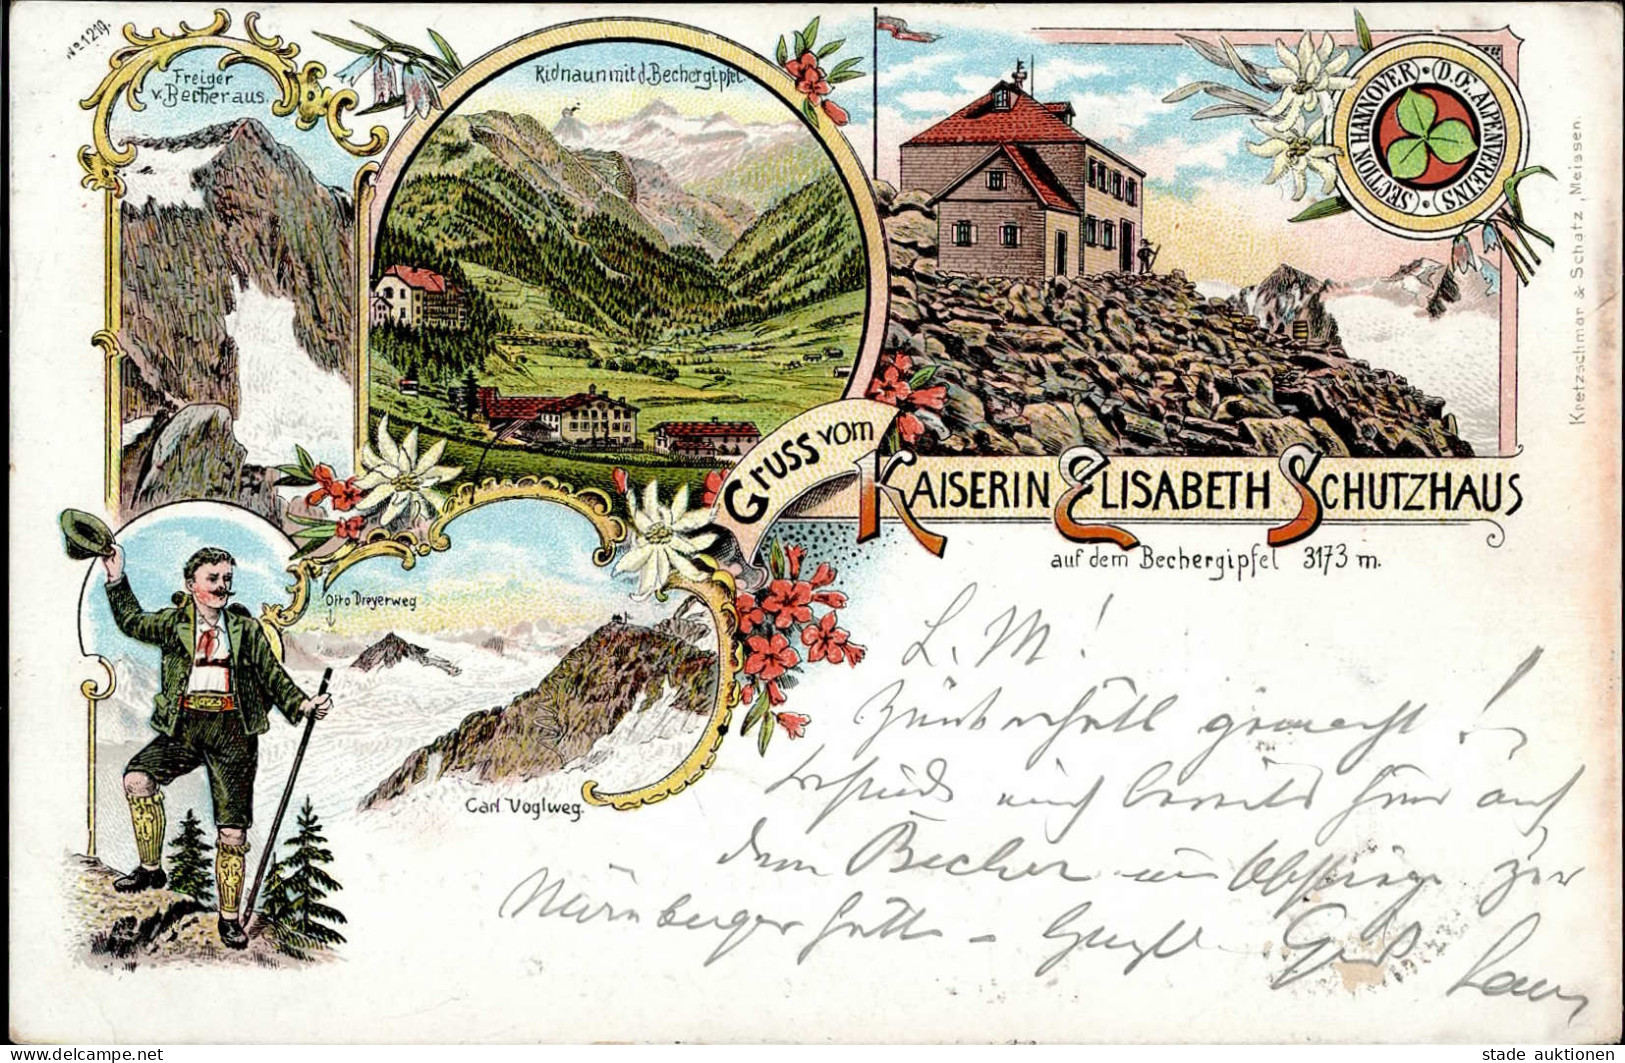 No 1219.
Freiger
v. Becher aus.
Ridnaun mit d. Bechergipfel.
SECTION HANNOVER · D.Oe. ALPENVEREINS ·
Kretzschmar & Schatz, Meissen.
Gruss vom
KAISERIN ELISABETH SCHUTZHAUS
auf dem Bechergipfel 3173 m.
Otto Dreyerweg
Carl Voglweg.
L. M!
gemacht!
mich bereits hier auf
dem Becher zur
Nürnberger Hütte - Gruß
stade auktionen